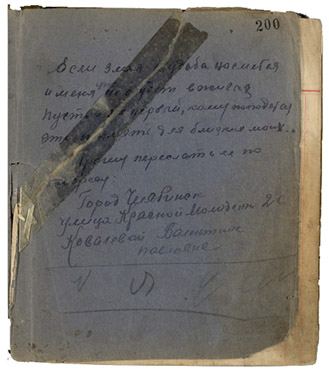 200
Если злая судьба посмеется
и меня не в живых
Пусть первый, кому попадется
эта для близких моих...
Прошу переслать ее по
адресу.
Город Челябинск
улица Красной Молодежи
Ковалевой Валентине
Павловне.